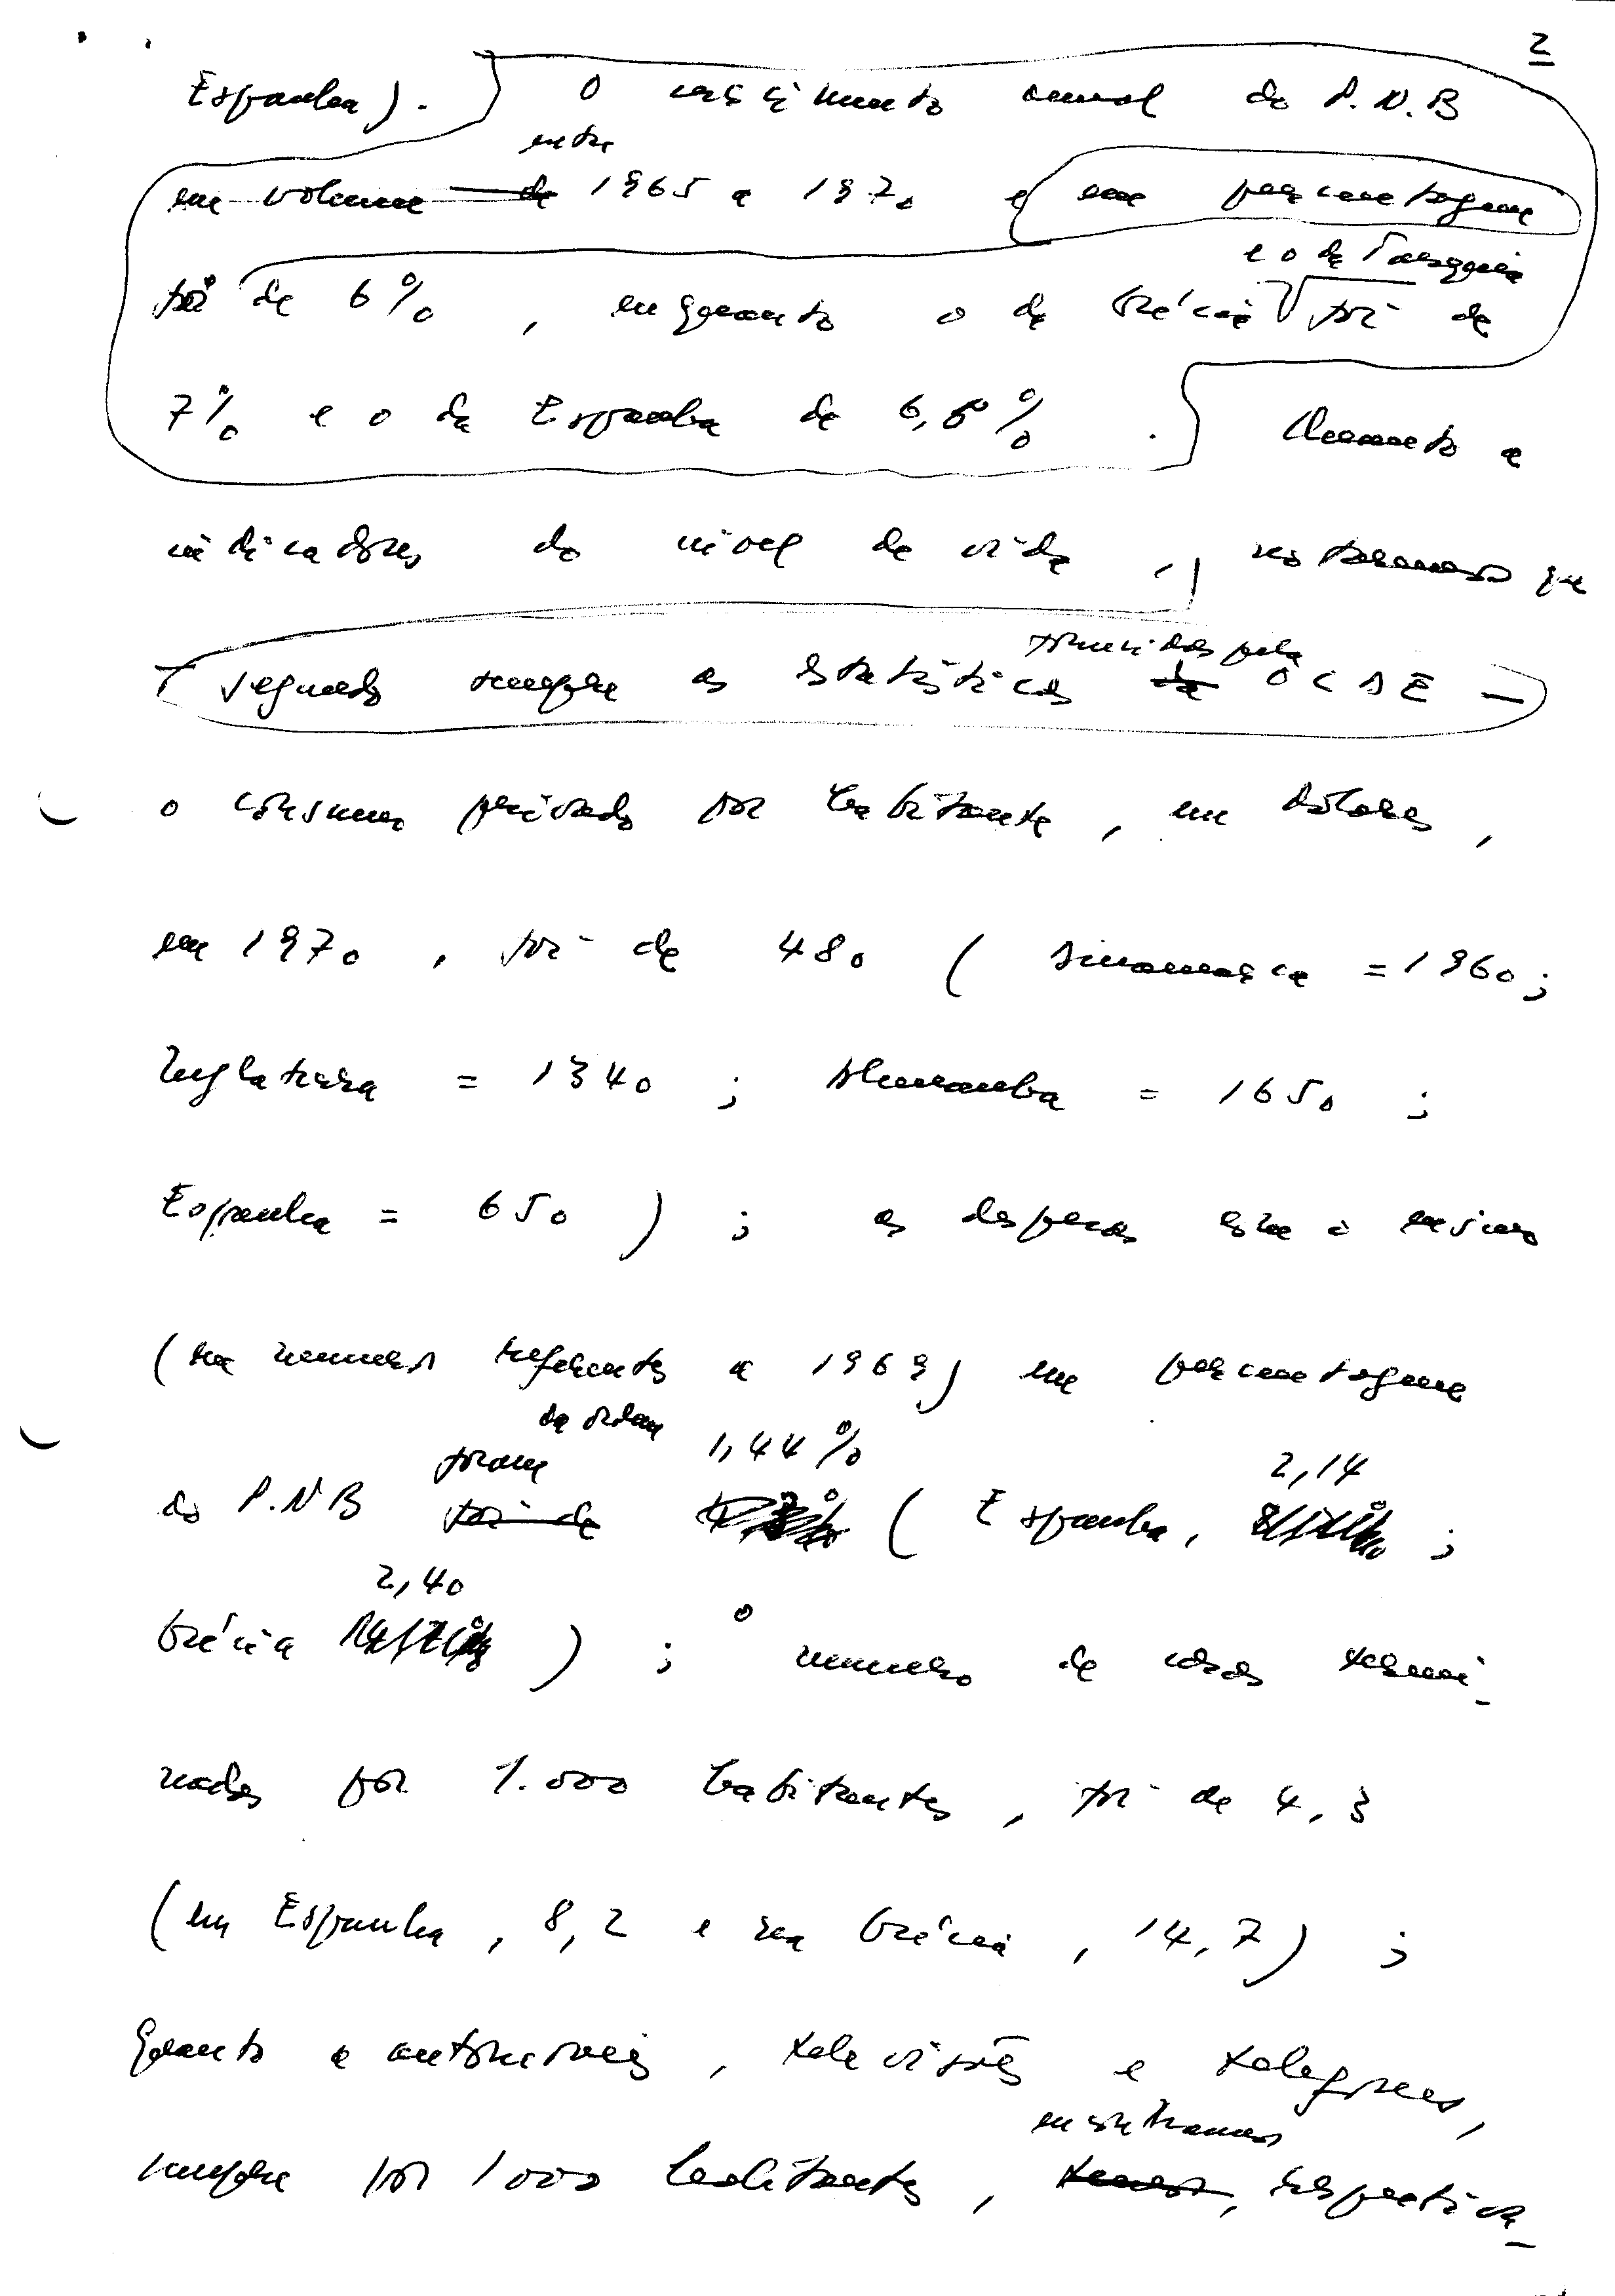 2
Espanha). O crescimento anual do P.N.B
entre
em volume de 1965 a 1970 e em percentagem
e o da Turquia
foi de 6% , enquanto o da Grécia foi de
7% e o da Espanha de 6,5% . Quanto a
indicadores do nível de vida , notaremos que
fornecidas pela
segundo sempre as estatísticas da OCDE —
o consumo privado por habitante , em dólares ,
em 1970 , foi de 480 ( Dinamarca = 1960 ;
Inglaterra = 1340 ; Alemanha = 1650 ;
Espanha = 650 ) ; as despesas com o ensino
( números referentes a 1969) em percentagem
da ordem
foram 1,44% 2,14
do P.N B foi de ( Espanha, ;
2,40
Grécia ) ; o numero de casas termi-
nadas por 1.000 habitantes , foi de 4,3
(em Espanha , 8,2 e na Grécia , 14,7 ) ;
Quanto a automóveis , televisões e telefones ,
encontramos
sempre por 1000 habitantes , temos , respectiva-